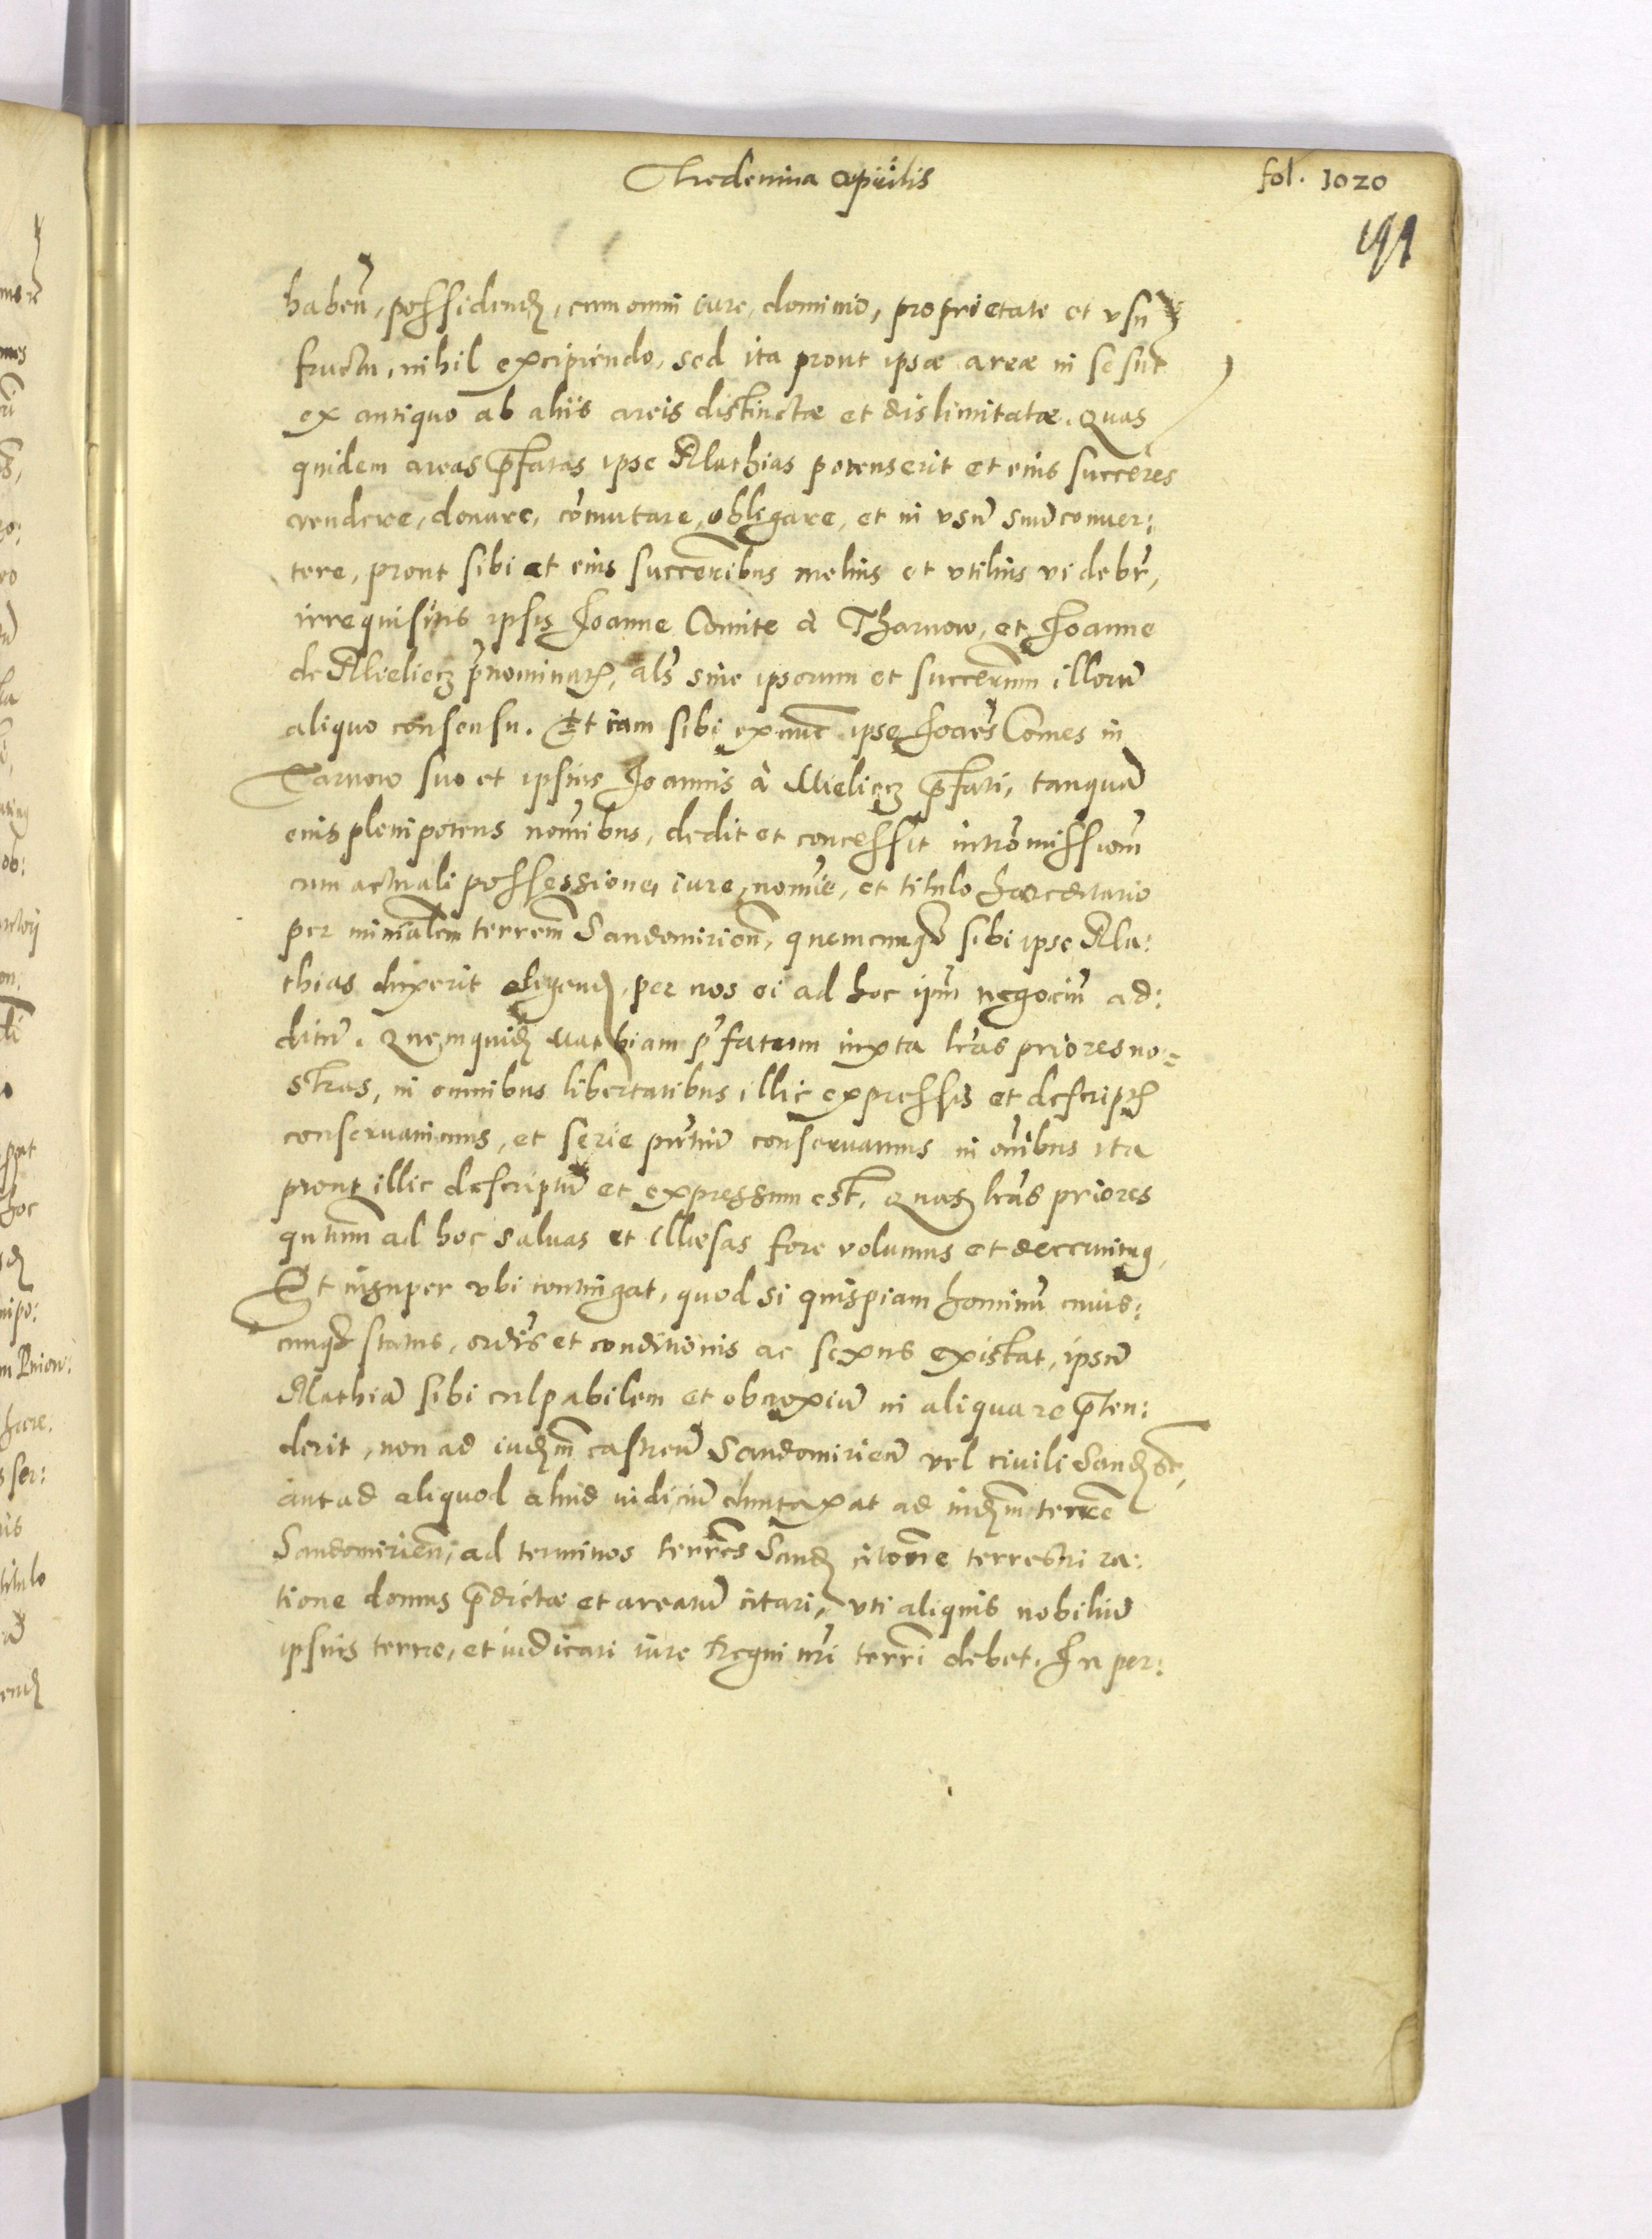 Thedemina aprilis
fol. 1020
191
haben̄, possidend, cum omni iure, dominio, proprietate et vsu
fructu, nihil excipiendo, sed ita prout ipsæ areæ in se sūt
ex antiquo ab aliis areis distinctæ et dislimitatæ. Quas
quidem areas p̄fatas ipse Mathias potens erit et eius succēres
vendere, donare, com̄utare, obligare, et in vsū suū conuer:
tere, prout sibi et eius succēribus melius et vtilius videbr̄,
irrequisitis ipsis Joanne Comite à Tharnow, et Joanne
de Mieliecz p̄nominatꝭ, als̄ sine ipsorum et succerum illorū
aliquo consensu. Et iam sibi ex nūc ipse Joan̄es Comes in
Tarnow suo et ipsius Joannis à Mieliecz p̄fati, tanquā
eius plenipotens nom̄ibus, dedit et concessit intromissiōm
cum actuali possessione, iure, nom̄ie, et titulo hæreditario
per minālem terrem̄ Sandomirien̄, quemcunqꝫ sibi ipse Ma:
thias duxerit eligend, per nos ei ad hoc ip̄m negociū ad:
ditū. Quemquid Mathiam p̄fatum iuxta lr̄as priores no=
stras, in omnibus libertatibus illic expressis et descriptꝭ
conseruauimus, et serie pn̄tiū conseruamus in om̄ibus ita
prout illic descriptū et expressum est. Quas lr̄as priores
qutum ad hoc saluas et illæsas fore volumus et decernimꝰ,
Et insuper vbi contingat, quod si quispiam hominū cuius:
cunqꝫ status, ordīs et conditionis ac sexus existat, ipsū
Mathiā sibi culpabilem et obnoxiū in aliqua re p̄ten:
derit, non ad iudm castren̄ Sandomirien̄ vel ciuili Sand
aut ad aliquod aliud iudiciū duntaxat ad iudm terre
Sandomirien̄, ad terminos terrēs Sand citōne terrestri ra:
tione domus p̄dictæ et arearū citari, vti aliquis nobiliū
ipsius terræ, et iudicari iure Regni nr̄i terri debet. In per: